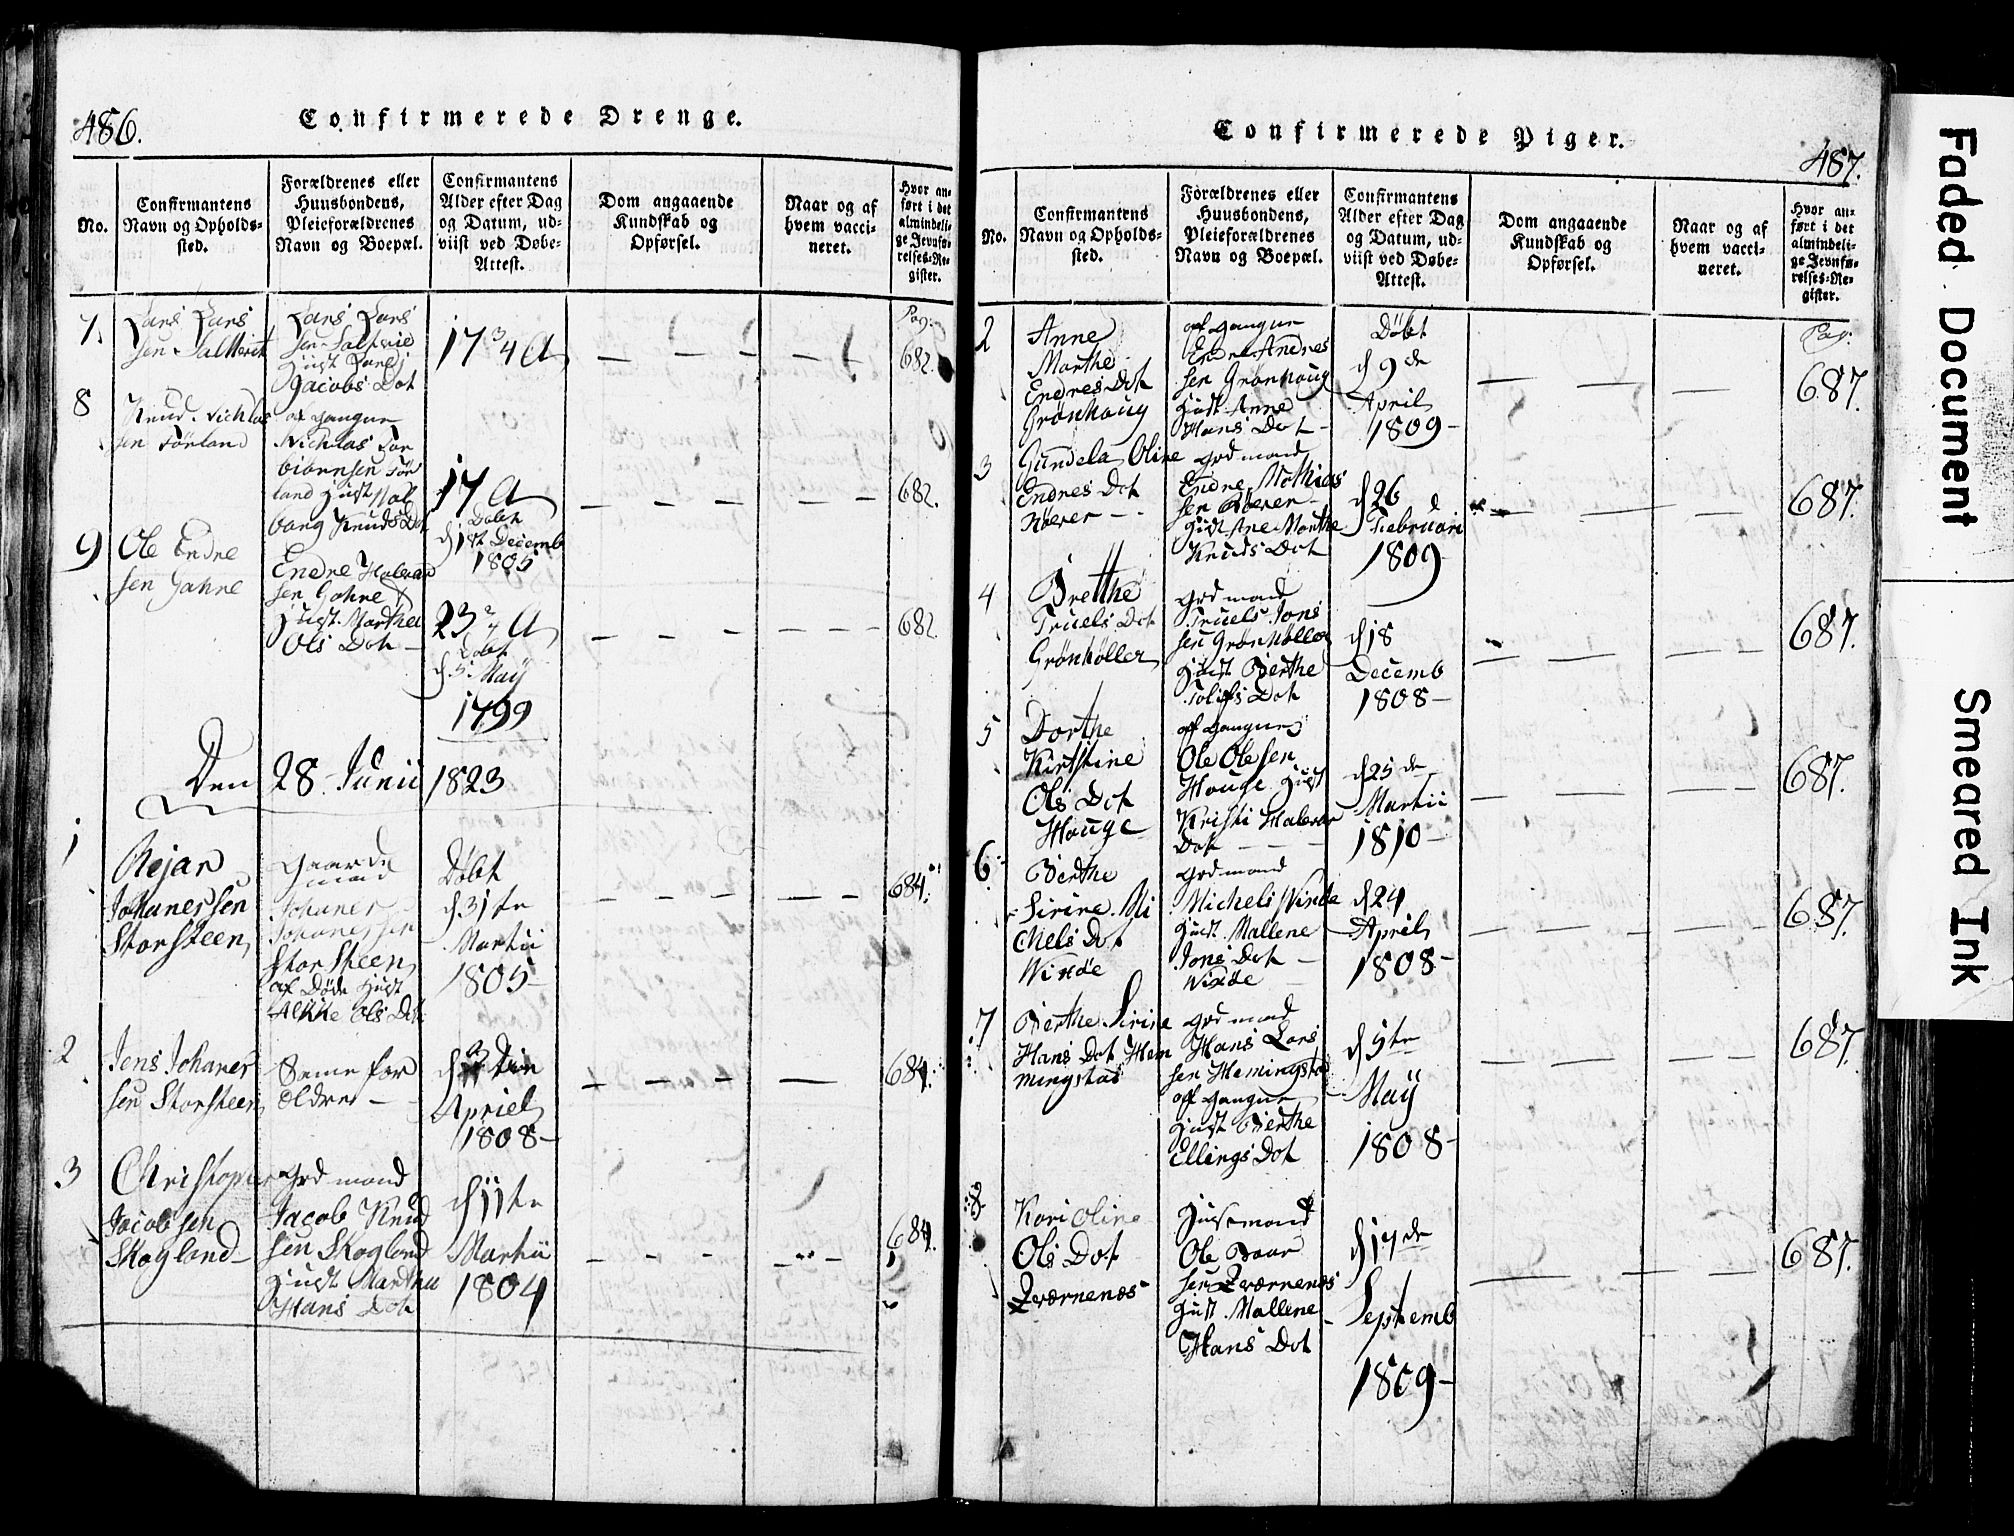 486.
Confirmerede Drenge.
No.
Confirmantens
Navn og Opholds-
sted.
Forældrenes eller
Huusbondens,
Pleieforældrenes
Navn og Boepæl.
Confirmantens
Alder efter Dag
og Datum, ud-
viist ved Døbe-
Attest.
Dom angaaende
Kundskab og
Opførsel.
Naar og af
hvem vacci-
neret.
Hvor an-
ført i det
almindeli-
ge Jevnfø-
relses-Re-
gister.
7.
Lars Lars
sen
Lars Lars
sen
Hust
Jacobs Dot
17 3/4 A
Pag:
682.
8
Knud Nichlas
sen Førland
af gangne
Nichlas Tor
biørnsen Før
land Hust Val
borg Knuds Dot
17 A
Døbt
d 1st Decemb
1805
682.
9
Ole Endre
sen
Endre Halvar
sen
Hust. Marthe
Ols Dot
23 A
Døbt
d 5 Maÿ
1799
682.
Den 28 Junii 1823
1
Rejar
Johanessen
Storsteen
Gaard
mand
Johanes
Johanessen
Storsteen
af Døde Hust
Ols Dot
Døbt
d 31te
Martii
1805
684.
2
Jens Johanes
sen Storsteen
Seme for
Eldre
d
Apriel
1808
684.
3
Christopher
Jacobsen
Skogland
Grd mand
Jacob Knud
sen Skogland
Hust Martha
Hans Dot
d 11te
Martii
1804
684.
Confirmerede Piger.
487.
No.
Confirmantens
Navn og Opholds-
sted.
Forældrenes eller
Huusbondens,
Pleieforældrenes
Navn og Boepæl.
Confirmantens
Alder efter Dag
og Datum, ud-
viist ved Døbe-
Attest.
Dom angaaende
Kundskab og
Opførsel.
Naar og af
hvem vacci-
neret.
Hvor an-
ført i det
almindeli-
ge Jevnfø-
relses-Re-
gister.
2
Anne
Marthe
Endres Dot
Grønhoug
af gangne
Endre Andres
sen Grønhoug
Hust Anne
Hans Dot
Døbt
d 9de
April
1809
Pag:
687.
3
Gundela Oline
Endres Dot
Røever
grd mand
Endre Mathias
sen Røever
Hust Ane Marthe
Knuds Dot
d 26
Februari
1809
687.
4
Brethe
Truels Dot
Grønhøller
grd mand
Truels Jons
sen Grønhøller
Hust Berthe
Dot
d 18
Decemb
1808
687.
5
Dorthe
Kirstine
Ols Dot
Houge
af gangne
Ole Olesen
Houge Hust
Kristi Halvor
Dot
d 25de
Martii
1810
687.
6
Berthe
Sirine Mi
chels Dot
Wixøe
grd mand
Michels Wixøe
Hust. Mallene
Jons Dot
Wixøe
d 24
April
1808
687.
7
Berthe Sirine
Hans Dot Hem
mingstad
grd mand
Hans Lars
sen Hemingstad
af gangne
Hust Berthe
Ellings Dot
d 5te
Maÿ
1808
687.
8
Kari Oline
Ols Dot
Qværnenæs
Husemand
Ole Baar
sen Qværnenæs
Hust. Mallene
Hans Dot
d 17de
Septemb
1809
687.
Faded Document
Smeared Ink